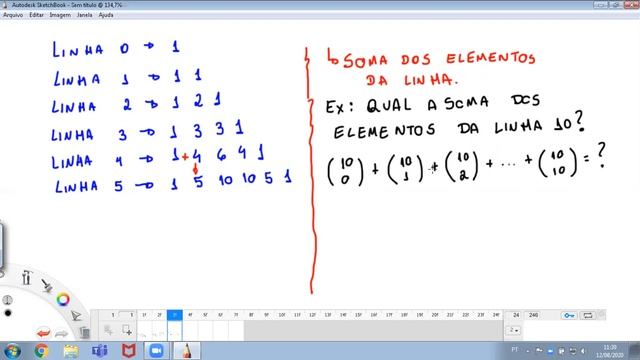 Autodesk SketchBook - Sem título @ 134,7%
Arquivo Editar Imagem Janela Ajuda
LINHA 0 → 1
LINHA 1 → 1 1
LINHA 2 → 1 2 1
LINHA 3 → 1 3 3 1
LINHA 4 → 1 + 4 6 4 1
LINHA 5 → 1 5 10 10 5 1
↳ SOMA DOS ELEMENTOS
DA LINHA.
EX: QUAL A SOMA DOS
ELEMENTOS DA LINHA 10?
(10 0) + (10 1) + (10 2) + ... + (10 10) = ?
24 246
PT 11:39
12/08/2020